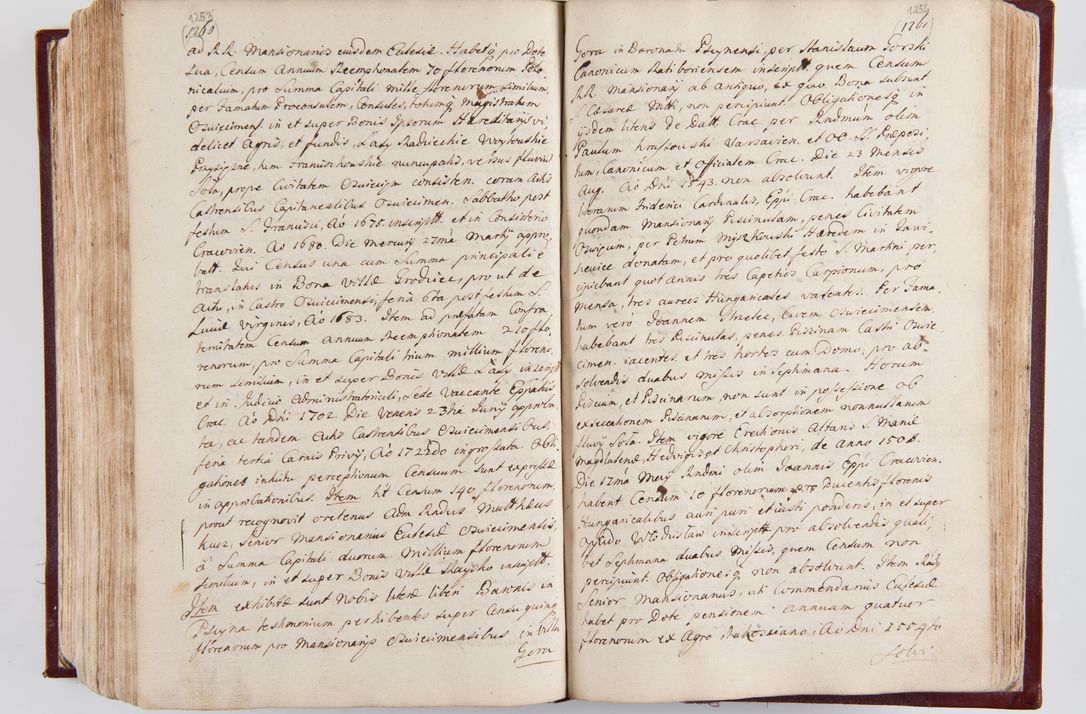 1253
(1260
ad R.R. Mansionarios eiusdem Ecclesiæ. Habetq pro Dote
sua, Censum Annuum Reemptionalem 70 florenorum Polo
nicalium, pro Summa Capitali mille florenorum similium,
per famatum Proconsulem, Consules, totumq Magistratum
Osviecimens. in et super Bonis Ipsorum Hæreditarijs vi
delicet Agris, et fundis, Lasy Stadnickie
nuncupatis, versus fluvium
Sola, prope Civitatem Osviecim consisten. coram Actis
Castrensibus Capitanealibus Osviecimen. Sabbatho post
festum S. Francisci, Aõ 1675. inscriptt. et in Consistorio
Cracovien. Aõ 1680. Die Mercurij 27ma Martij appro
batt. Qui Census una cum Summa principali è
translatus in Bona Villæ Grodziec, pro ut de
Actu, in Castro Osviecimensi, feria 6ta post festum S.
Luciæ Virginis, Aõ 1683. Item ad præfatam Confra
ternitatem Censum Annuum Reemptionalem 210 flo
renorum, pro Summa Capitali trium millium floreno
rum similium, in et super Bonis Villæ Lasy inscript
et in Judicio Administratoriali, Sede Vacante Eppatus
Crac. Aõ Dni 1702. Die Veneris 23tia Junij approba
ta, ac tandem Actis Castrensibus Osviecimensibus,
feria tertia Carnis Privij, Aõ 1722do ingrossata. Obli
gationes intuitu perceptionum Censuum sunt expressæ
in approbationibus. Item ht Censum 140 florenorum,
prout recognovit oretenus Adm Rndus Matthæus
Kucz, Senior Mansionarius Ecclesiæ Osviecimensis,
à Summa Capitali duorum Millium florenorum
similium, in et super Bonis Villæ Raysko inscriptt.
Item exhibitæ sunt Nobis literæ liberi Baronis in
Pszyna testimonium perhibentes super Censu quinq
florenorum pro Mansionarijs Osviecimensibus in Villa
Gora
1254
(1261
Gora in Baronatu Pszynensi, per Stanislaum Gorski
Canonicum Ratiboriensem inscriptt. quem Censum
R.R. Mansionarij ab antiquo, ex quo Bona subsunt
S. Cæsareæ Mtti, non percipiunt. Obligationesq in
ijsdem literis de Datt. Crac. per Rndmum olim
Paulum Varsavien. et OO. SS. Præposi
tum, Canonicum et Officialem Crac. Die 23 Mensis
Aug. Aõ Dni 1543. non absolvunt. Item vigore
literarum Friderici Cardinalis, Eppi Crac. habebant
quondam Mansionarij Piscinulam, penes Civitatem
Osvięcim, per Petrum Myszkowski Hæredem in
donatam, et pro quolibet festo S. Martini per
cipiebant quot annis tres Capetios Carpionum, pro
mensa, tres aureos Hungaricales valentes. Per Fama
tum verò Joannem Strelec, Civem Osviecimensem,
habebant tres Piscinulas, penes Piscinam Castri Osvie
cimen. iacentes. et tres hortos cum Domo, pro ab
solvendis duabus Missis in septimana. Horum
Piscium, et Piscinarum non sunt in possessione ob
exsiccationem Piscinarum, et absorptionem nonnullarum
fluvij Sola. Item vigore Erectionis Altaris S. Mariæ
Magdalenæ, Hedvigis et Christophori, de Anno 1508.
Die 17ma Maij Rndmi olim Joannis Eppi Cracovien.
habent Censum 10 florenorum pro Ducentis florenis
Hungaricalibus auri puri et iusti ponderis, in et super
Oppido Wlodislaw inscriptt. pro absolvendis quali
bet Septimana duabus Missis, quem Censum non
percipiunt. Obligationesq non absolvunt. Item Rndus
Senior Mansionarius, uti Commendarius Ecclesiæ
habet pro Dote pensionem annuam quatuor
florenorum ex Agro Aõ Dni 1554to
Solvi